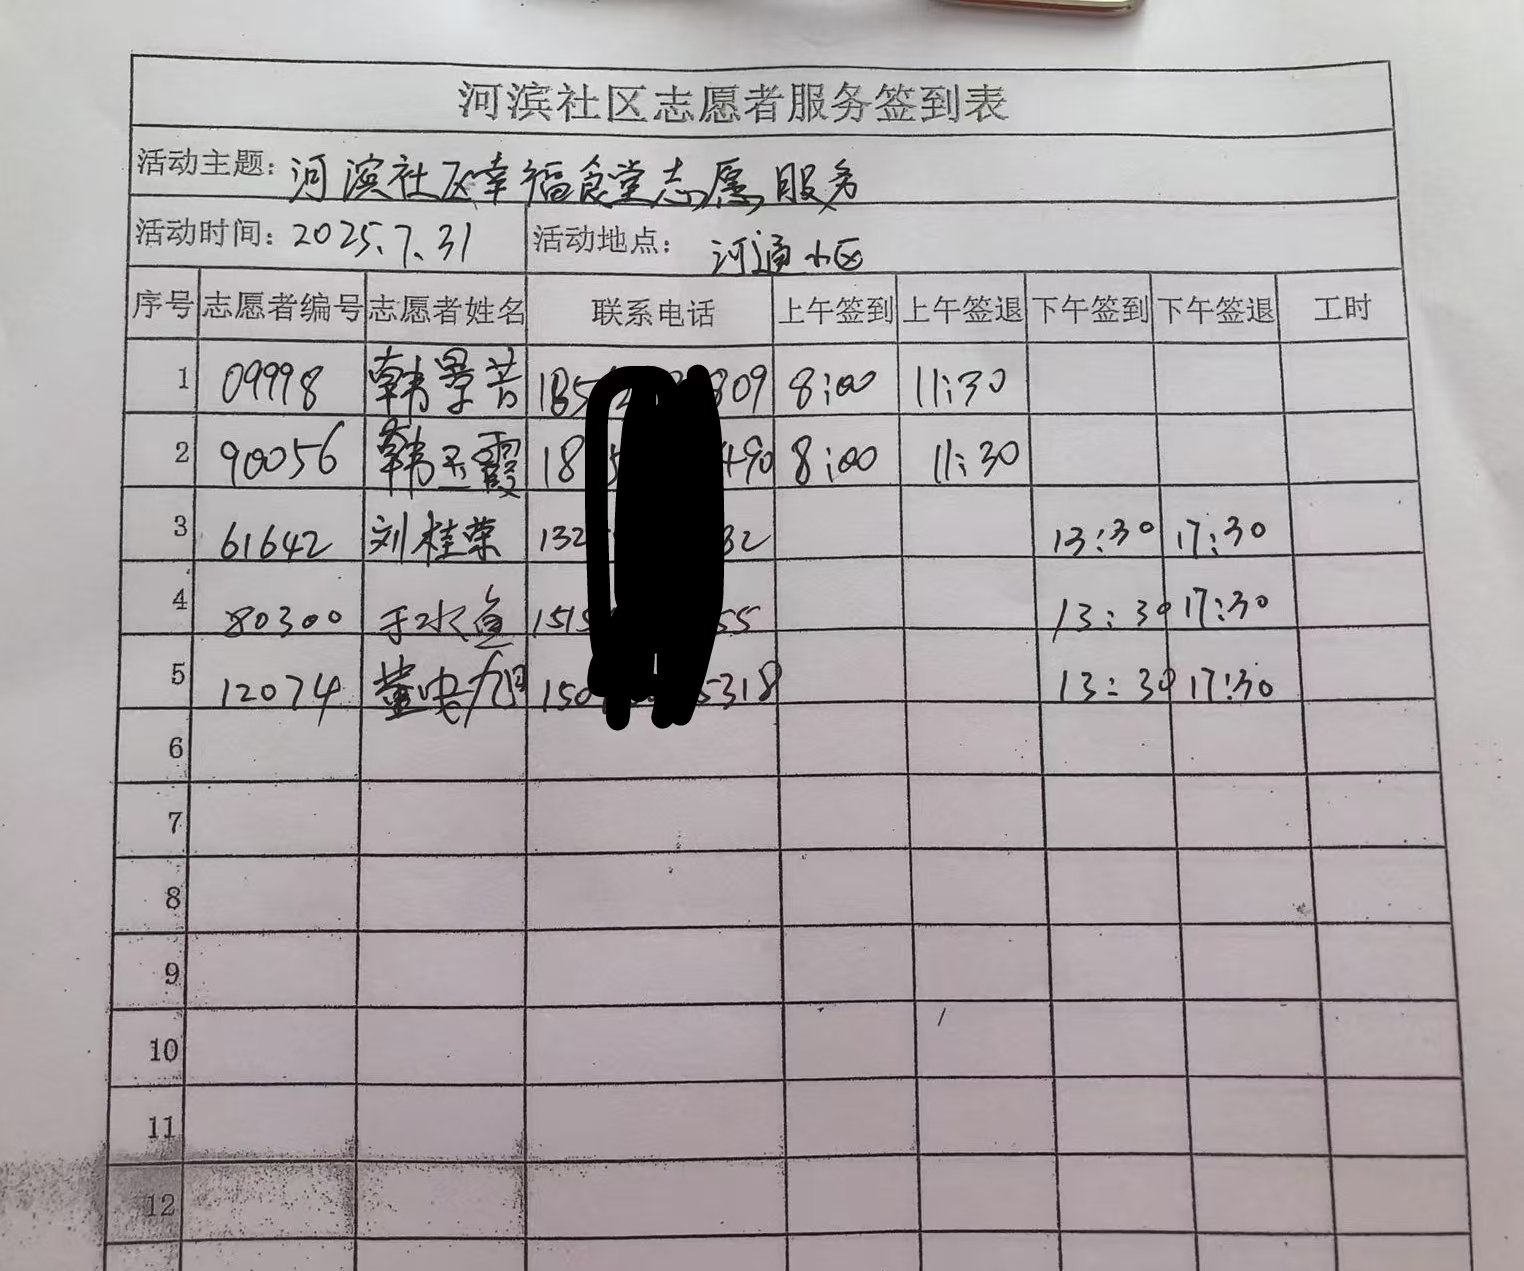 河滨社区志愿者服务签到表
活动主题: 河滨社区幸福食堂志愿服务
活动时间: 2025.7.31 活动地点: 河通小区
序号 志愿者编号 志愿者姓名 联系电话 上午签到 上午签退 下午签到 下午签退 工时
1 09998 韩景 809 8:00 11:30
2 90056 韩玉霞 18 490 8:00 11:30
3 61642 刘桂荣 132 32 13:30 17:30
4 80300 于水鱼 151 55 13:30 17:30
5 12074 董 旭 150 5318 13:30 17:30
6
7
8
9
10
11
12